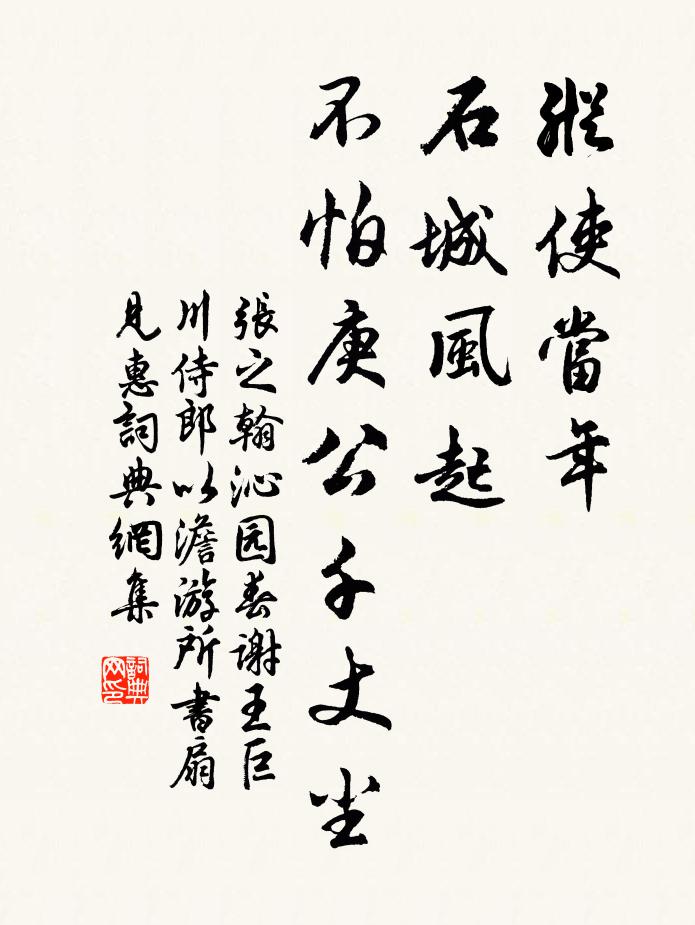 縱使當年
石城風起
不怕庚公千丈尘
張之翰沁园春謝王巨
川侍郎以澹游所書扇
見惠詞典網集
詞典網印